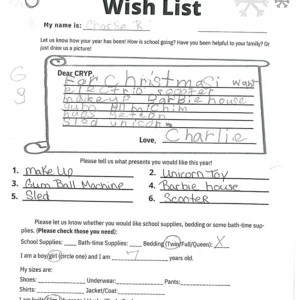 Wish List
My name is: Charlie R
Let us know how your year has been! How is school going? Have you been helpful to your family? Or
just draw us a picture!
G
9
Dear CRYP,
For Christmas i want
electric scooter
makeup Barbie house
Love, Charlie
Please tell us what presents you would like this year!
1. Make Up 2. Unicorn Toy
3. Gum Ball Machine 4. Barbie house
5. Sled 6. Scooter
Please let us know whether you would like school supplies, bedding or some bath-time sup-
plies. (Please check those you need):
School Supplies: Bath-time Supplies: Bedding (Twin/Full/Queen): X
I am a boy/girl (circle one) and I am 7 years old.
My sizes are:
Shoes: Underwear: Pants:
Shirts: Jacket/Coat: